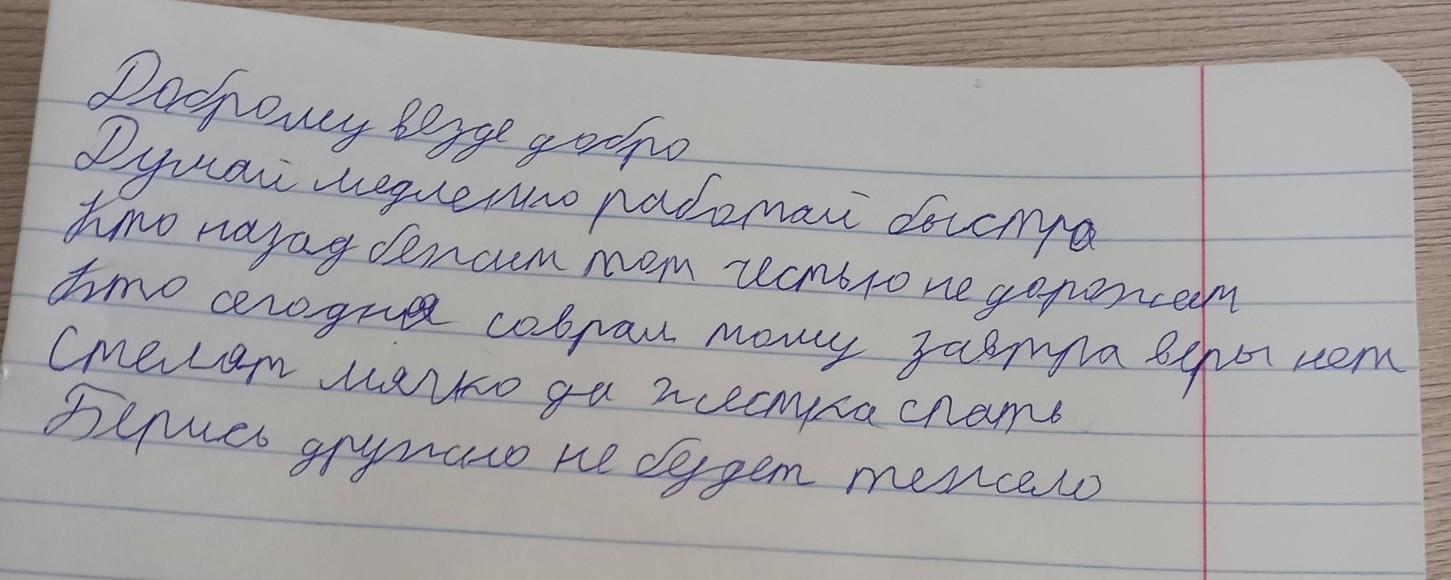 Доброму везде добро
Думай медленно работай быстра
Кто назад бежит тот честью не дорожит
Кто сегодня соврал тому завтра веры нет
Стелят мягко да жестка спать
Берись дружно не будет тежело